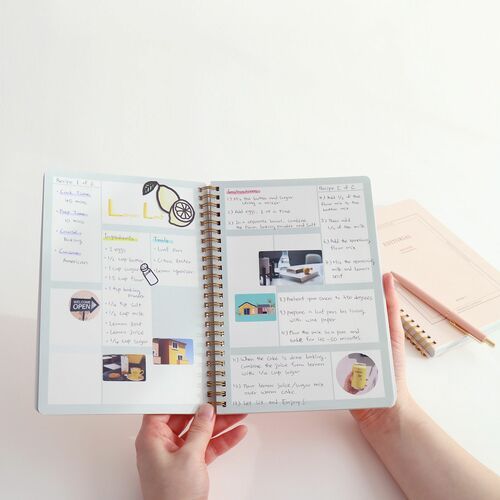 Recipe 1 of 2
• Cook Time:
40 mins
• Prep Time:
10 mins
Baking
• Cuisine:
American
Lemon Loaf
Ingredients
• 2 eggs
• 1/2 cup butter
• 1 cup sugar
• 1.5 cup flour
• 1 tsp baking
powder
• 1/2 tsp salt
• 1/2 cup milk
• Lemon zest
• Lemon Juice
• 1/4 cup sugar
Tools:
• Loaf pan
WELCOME
OPEN
Instructions:
1) Mix the butter and sugar
using a mixer
2) Add eggs, 1 at a time
3) In a separate bowl, combine
the flour, baking powder and salt
Recipe 1 of 2
4) Add 1/2 of the
flour mix to the
butter mix
5) Then add
1/2 of the milk
6) Add the remaining
flour mix
7) Mix the remaining
milk and lemon
zest
8) Preheat your oven to 350 degrees
9) Prepare a loaf pan by lining
with wax paper
10) Pour the mix in a pan and
bake for 40-50 minutes
11) When the cake is done baking,
combine the juice from lemon
with 1/4 cup sugar
12) Pour lemon juice/sugar mix
over warm cake.
13) Let sit and Enjoy!